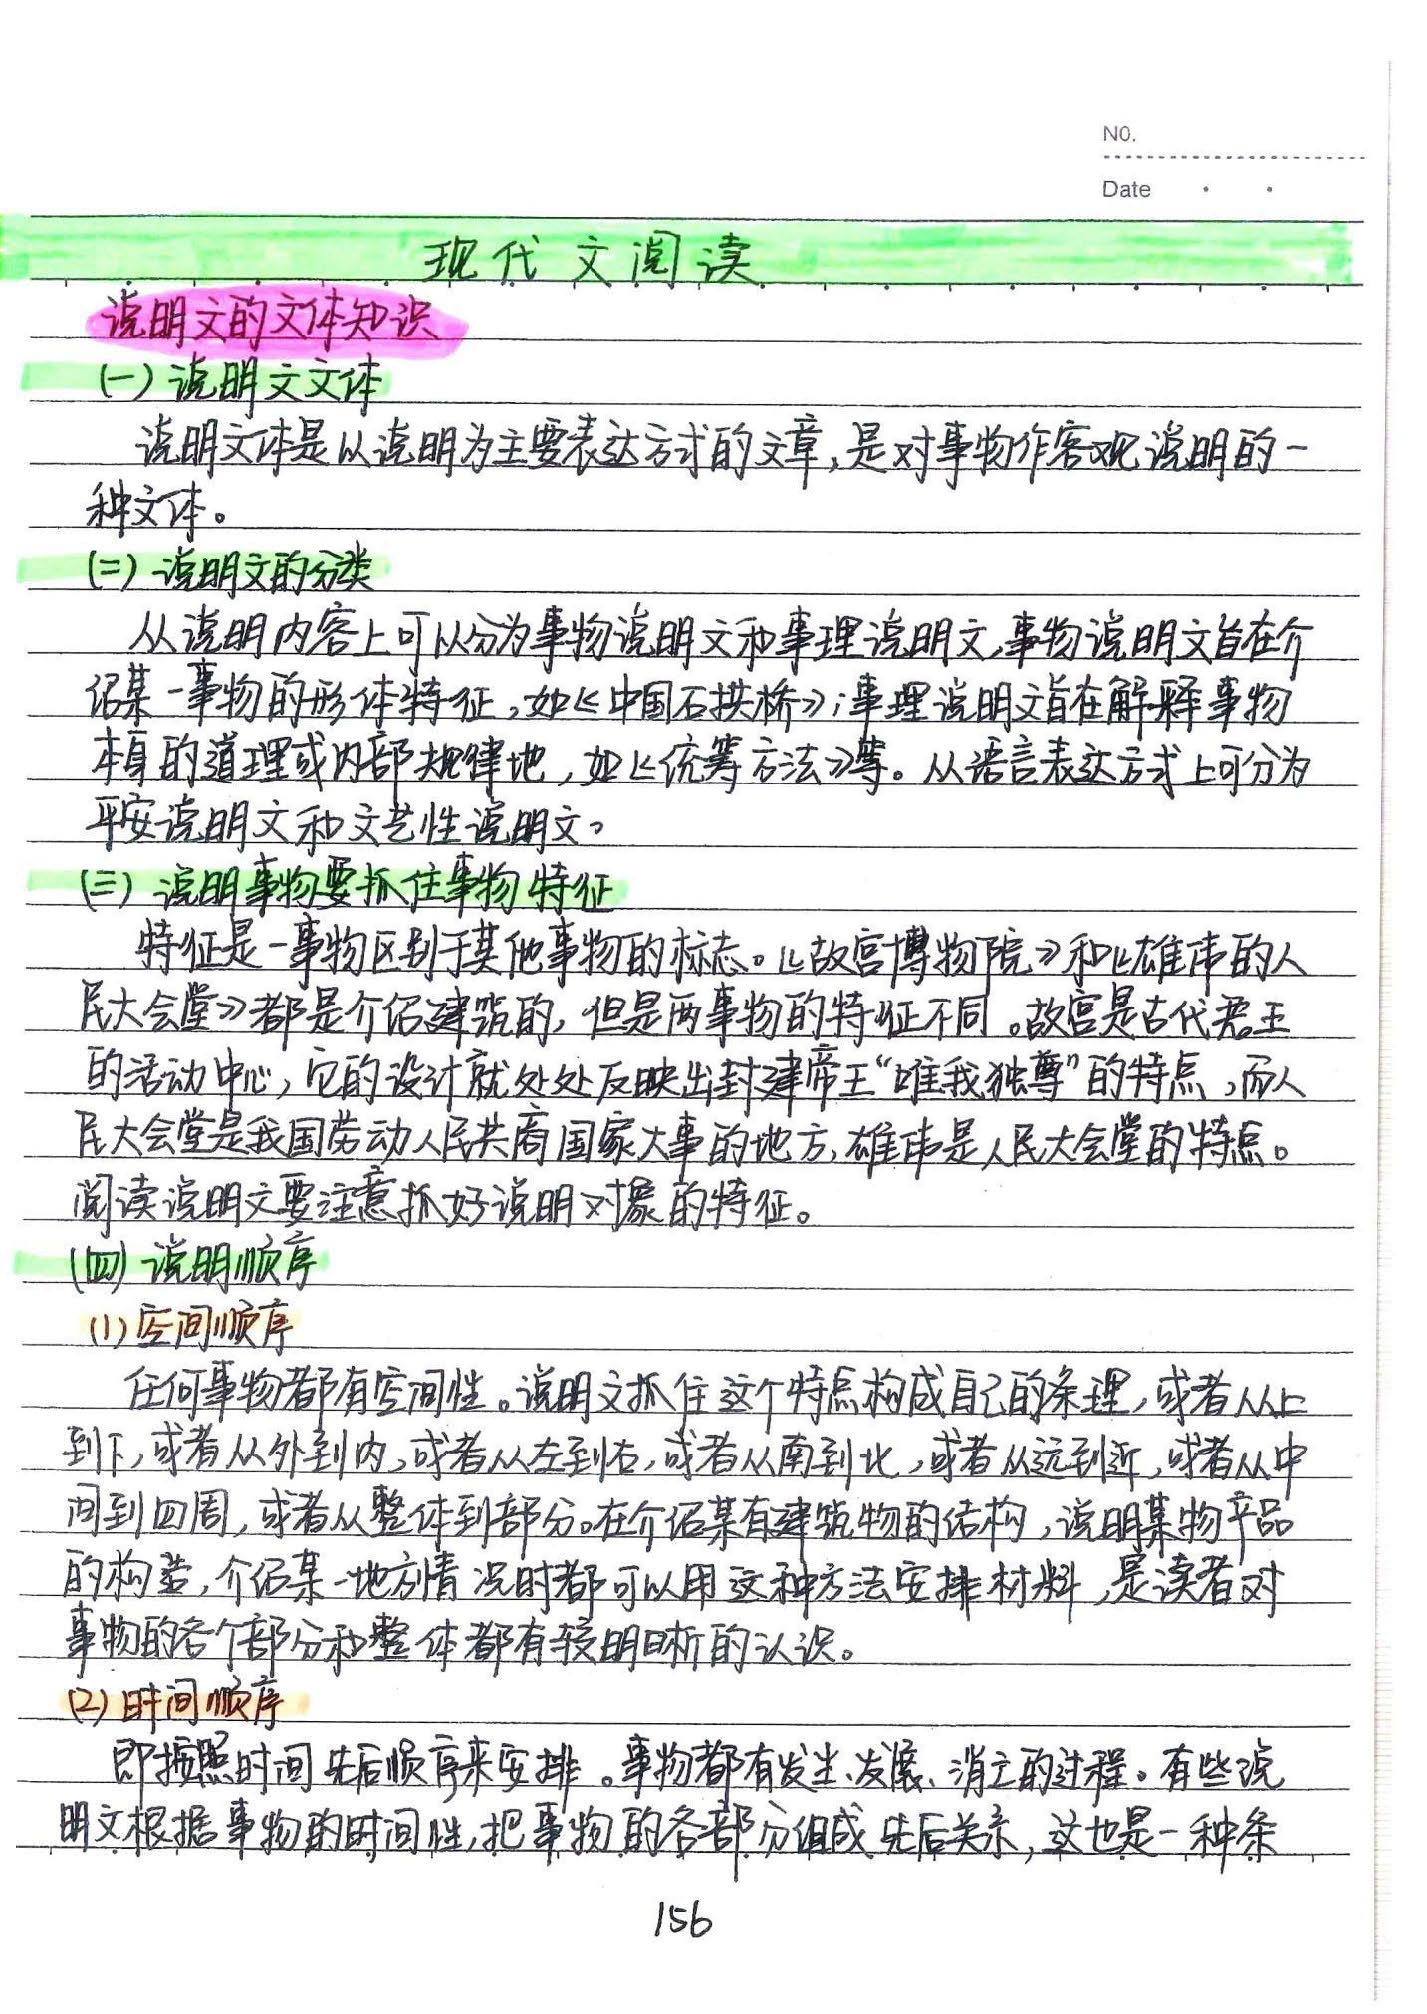 NO.
Date
现代文阅读
说明文的文体知识
(一) 说明文文体
说明文体是以说明为主要表达方式的文章,是对事物作客观说明的一
种文体。
(二) 说明文的分类
从说明内容上可以分为事物说明文和事理说明文,事物说明文旨在介
绍某一事物的形体特征,如《中国石拱桥》;事理说明文旨在解释事物
本身的道理或内部规律地,如《统筹方法》等。从语言表达方式上可分为
平安说明文和文艺性说明文。
(三) 说明事物要抓住事物特征
特征是一事物区别于其他事物的标志。《故宫博物院》和《雄伟的人
民大会堂》都是介绍建筑的,但是两事物的特征不同。故宫是古代君王
的活动中心,它的设计就处处反映出封建帝王“唯我独尊”的特点,而人
民大会堂是我国劳动人民共商国家大事的地方,雄伟是人民大会堂的特点。
阅读说明文要注意抓好说明对象的特征。
(四) 说明顺序
(1) 空间顺序
任何事物都有空间性。说明文抓住这个特点构成自己的条理,或者从上
到下,或者从外到内,或者从左到右,或者从南到北,或者从远到近,或者从中
间到四周,或者从整体到部分。在介绍某有建筑物的结构,说明某物产品
的构造,介绍某一地方情况时都可以用这种方法安排材料,是读者对
事物的各个部分和整体都有较明晰的认识。
(2) 时间顺序
即按照时间先后顺序来安排。事物都有发生、发展、消亡的过程。有些说
明文根据事物的时间性,把事物的各部分组成先后关系,这也是一种条
156